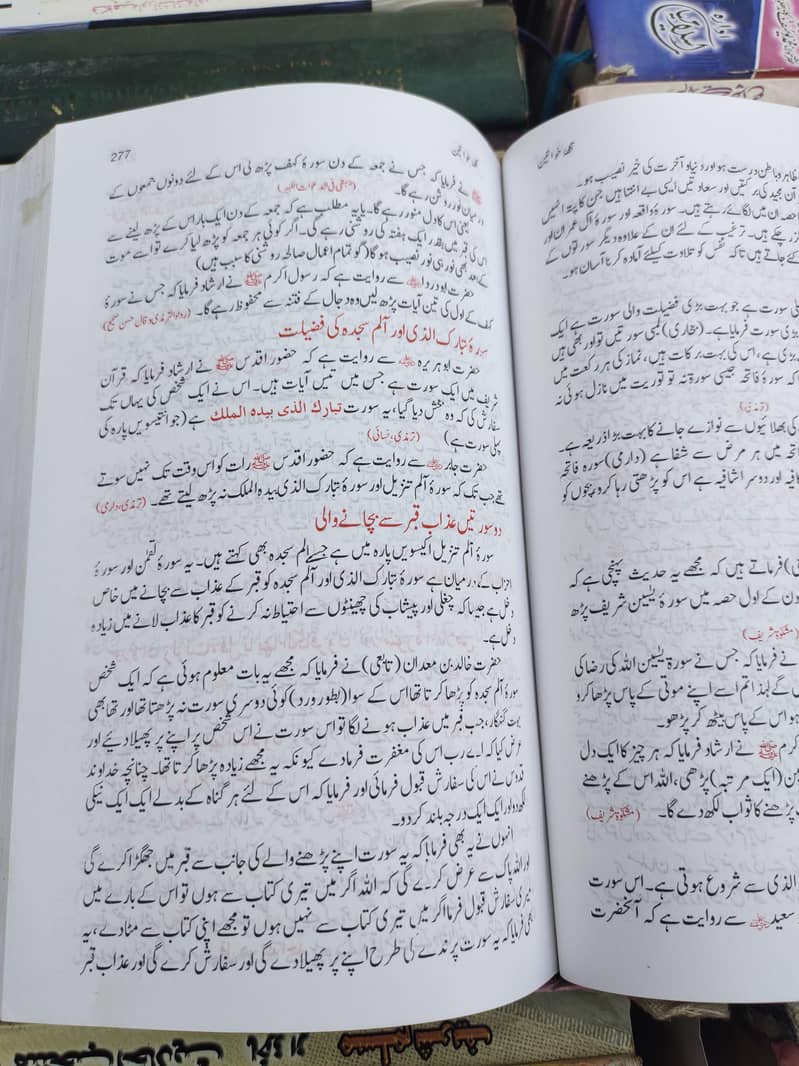 277
تحفۂ خواتین
ﷺ نے فرمایا کہ جس نے جمعہ کے دن سورۂ کہف پڑھ لی اس کے لئے دونوں جمعوں کے
درمیان نور روشن رہے گا۔ (بیہقی فی الدعوات الکبیر)
یعنی اس کا دل منور رہے گا۔ یا یہ مطلب ہے کہ جمعہ کے دن ایک بار اس کے پڑھ لینے سے
اس کی قبر میں بقدر ایک ہفتہ کی روشنی رہے گی۔ اگر کوئی ہر جمعہ کو پڑھ لیا کرے تو اسے موت
کے بعد بھی نور ہی نور نصیب ہوگا (گو تمام اعمال صالحہ روشنی کا سبب ہیں)
حضرت ابو درداءؓ سے روایت ہے کہ رسول اکرم ﷺ نے ارشاد فرمایا کہ جس نے سورۂ
کہف کے اول کی تین آیات پڑھ لیں وہ دجال کے فتنہ سے محفوظ رہے گا۔ (رواہ الترمذی وقال حسن صحیح)
سورۂ تبارک الذی اور آلم سجدہ کی فضیلت
حضرت ابو ہریرہؓ سے روایت ہے کہ حضور اقدس ﷺ نے ارشاد فرمایا کہ قرآن
شریف میں ایک سورت ہے جس میں تیس آیات ہیں۔ اس نے ایک شخص کی یہاں تک
سفارش کی کہ وہ بخش دیا گیا، یہ سورت تبارک الذی بیدہ الملک ہے (جو انتیسویں پارہ کی
پہلی سورت ہے) (ترمذی، نسائی)
حضرت جابرؓ سے روایت ہے کہ حضور اقدس ﷺ رات کو اس وقت تک نہیں سوتے
تھے جب تک کہ سورۂ آلم تنزیل اور سورۂ تبارک الذی بیدہ الملک نہ پڑھ لیتے تھے۔ (ترمذی، دارمی)
دو سورتیں عذاب قبر سے بچانے والی
سورۂ آلم تنزیل اکیسویں پارہ میں ہے جسے الم سجدہ بھی کہتے ہیں۔ یہ سورۂ لقمن اور سورۂ
احزاب کے درمیان ہے سورۂ تبارک الذی اور آلم سجدہ کو قبر کے عذاب سے بچانے میں خاص
دخل ہے جیسا کہ چغلی اور پیشاب کی چھینٹوں سے احتیاط نہ کرنے کو قبر کا عذاب لانے میں زیادہ
دخل ہے۔
حضرت خالد بن معدان (تابعی) نے فرمایا کہ مجھے یہ بات معلوم ہوئی ہے کہ ایک شخص
سورۂ آلم سجدہ کو پڑھا کرتا تھا اس کے سوا (بطور ورد) کوئی دوسری سورت نہ پڑھتا تھا اور تھا بھی
بہت گنہگار، جب قبر میں عذاب ہونے لگا تو اس سورت نے اس شخص پر اپنے پر پھیلا دیئے اور
عرض کیا کہ اے رب اس کی مغفرت فرمادے کیونکہ یہ مجھے زیادہ پڑھا کرتا تھا۔ چنانچہ خداوند
قدوس نے اس کی سفارش قبول فرمائی اور فرمایا کہ اس کے لئے ہر گناہ کے بدلے ایک ایک نیکی
لکھ دو اور ایک ایک درجہ بلند کردو۔
انہوں نے یہ بھی فرمایا کہ یہ سورت اپنے پڑھنے والے کی جانب سے قبر میں جھگڑا کرے گی
اور اللہ پاک سے عرض کرے گی کہ اللہ اگر میں تیری کتاب سے ہوں تو اس کے بارے میں
میری سفارش قبول فرما اگر میں تیری کتاب سے نہیں ہوں تو مجھے اپنی کتاب سے مٹا دے، یہ
بھی فرمایا کہ یہ سورت پرندے کی طرح اپنے پر پھیلا دے گی اور سفارش کرے گی اور عذاب قبر
تحفۂ خواتین
ظاہر و باطن درست ہو اور دنیا و آخرت کی خیر نصیب ہو۔
آن مجید کی برکتیں اور سعادتیں ایسی بے انتہا ہیں جن کا پتہ انہیں
حصہ ان میں لگائے رہتے ہیں۔ سورۂ واقعہ اور سورۂ آل عمران اور
زر چکے ہیں۔ ترغیب کے لئے ان کے علاوہ دیگر سورتوں کے
کئے جاتے ہیں تاکہ نفس کو تلاوت کیلئے آمادہ کرنا آسان ہو۔
لی سورت ہے جو بہت بڑی فضیلت والی سورت ہے ایک
بڑی سورت فرمایا ہے۔ (بخاری) لمبی سورتیں تو اور بھی ہیں
بڑی ہے، اس کی بہت برکات ہیں، نماز کی ہر رکعت میں
کہ سورۂ فاتحہ جیسی سورت نہ تو توریت میں نازل ہوئی نہ
(ترمذی)
کی بھلائیوں سے نوازے جانے کا بہت بڑا ذریعہ ہے۔
اتحہ میں ہر مرض سے شفا ہے (دارمی) سورہ فاتحہ
افیہ اور دوسرا شافیہ ہے اس کو پڑھتی رہا کرو بچوں کو
ی) فرماتے ہیں کہ مجھے یہ حدیث پہنچی ہے کہ
دن کے اول حصہ میں سورۂ یٰسین شریف پڑھ
(مشکوٰۃ شریف)
نے فرمایا کہ جس نے سورۃ یٰسین اللہ کی رضا کی
ں گے لہٰذا تم اسے اپنے موتی کے پاس پڑھا کرو
ہو اس کے پاس بیٹھ کر پڑھو۔
کرم ﷺ نے ارشاد فرمایا کہ ہر چیز کا ایک دل
من (ایک مرتبہ) پڑھی، اللہ اس کے پڑھنے
پڑھنے کا ثواب لکھ دے گا۔ (مشکوٰۃ شریف)
الذی سے شروع ہوتی ہے۔ اس سورت
سعیدؓ سے روایت ہے کہ آنحضرت